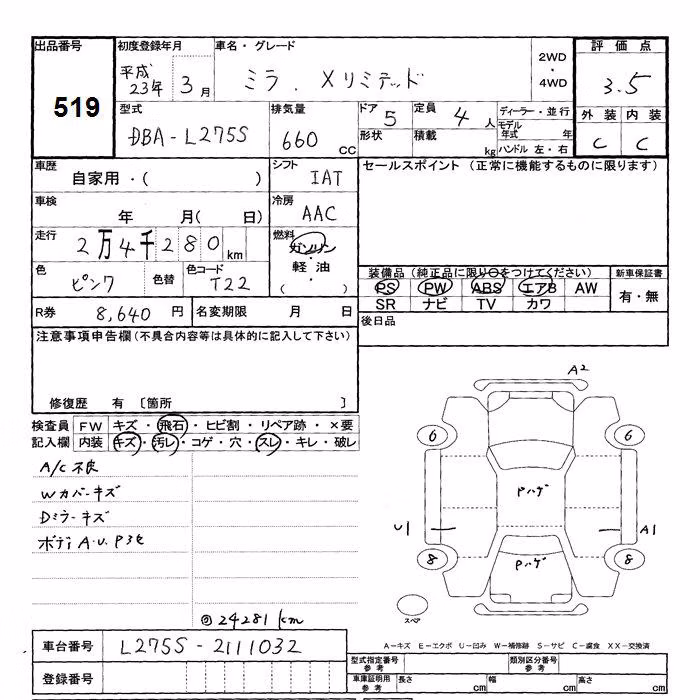 出品番号
519
初度登録年月
平成23年 3月
車名・グレード
ミラ・Xリミテッド
2WD・4WD
評価点
3.5
外装 内装
C C
型式
DBA-L275S
排気量
660 CC
ドア 5
定員 4 人
形状 積載 kg
ディーラー・並行
モデル年式 年
ハンドル 左・右
車歴
自家用・( )
シフト
IAT
セールスポイント (正常に機能するものに限ります)
車検
年 月( 日)
冷房
AAC
走行
2万4千280 km
燃料
ガソリン・軽油・( )
色
ピンク
色替
色コード
T22
装備品 (純正品に限り○をつけてください)
新車保証書
PS PW ABS エアB AW
有・無
SR ナビ TV カワ
R券 8,640 円
名変期限 月 日
後日品
注意事項申告欄(不具合内容等は具体的に記入して下さい)
修復歴 有 [箇所 ]
検査員記入欄
FW キズ・飛石・ヒビ割・リペア跡・×要
内装 キズ・汚レ・コゲ・穴・スレ・キレ・破レ
A/C不良
Wカバーキズ
Dミラーキズ
ボディA.U.P
A2
6 6
Pハゲ
U1 A1
8 8
Pハゲ
スペア
◎24281km
A-キズ E-エクボ U-凹み W-補修跡 S-サビ C-腐食 XX-交換済
車台番号
L275S-2111032
登録番号
型式指定番号 参考
類別区分番号 参考
車庫証明用 参考
長さ cm 幅 cm 高さ cm